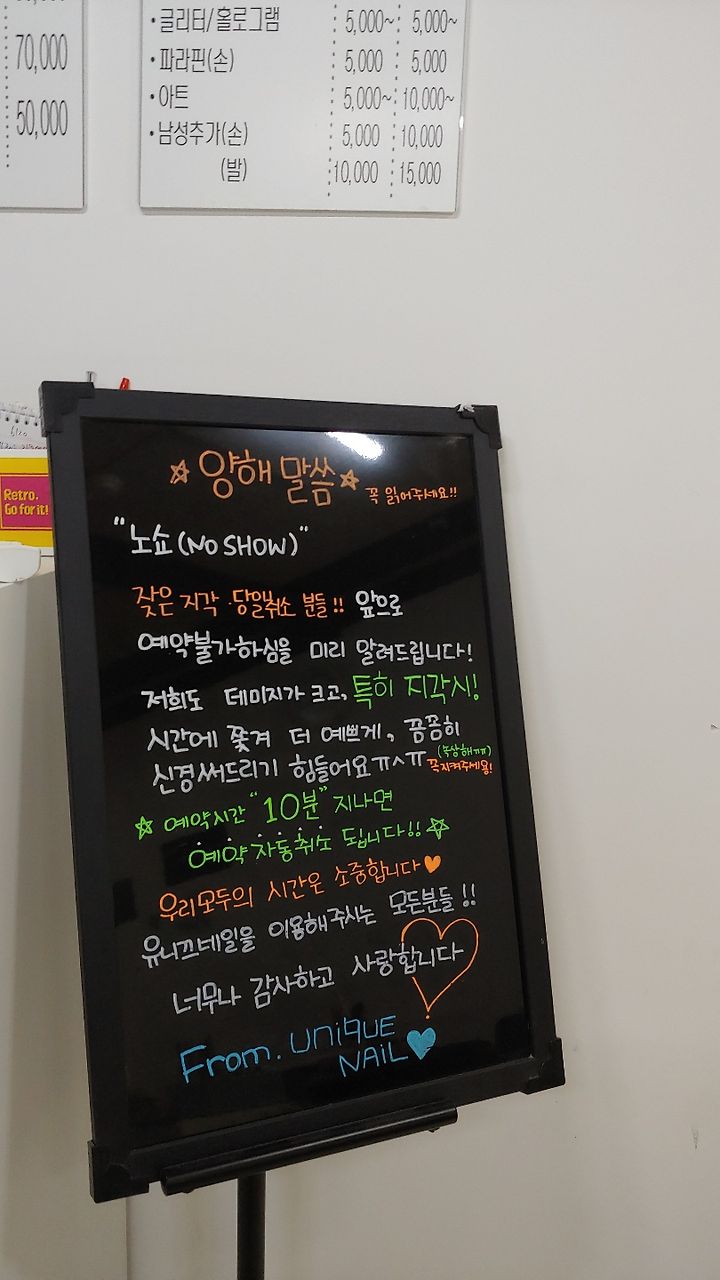 70,000
50,000
·글리터/홀로그램 5,000~ 5,000~
·파라핀(손) 5,000 5,000
·아트 5,000~ 10,000~
·남성추가(손) 5,000 10,000
(발) 10,000 15,000
Retro.
Go for it!
☆양해 말씀☆ 꼭 읽어주세요!!
"노쇼(NO SHOW)"
잦은 지각·당일취소 분들!! 앞으로
예약불가하심을 미리 알려드립니다!
저희도 데미지가 크고, 특히 지각시!
시간에 쫓겨 더 예쁘게, 꼼꼼히
신경써드리기 힘들어요ㅠ^ㅠ (속상해ㅠㅠ)
꼭지켜주세용!
☆ 예약시간 "10분" 지나면
예약 자동취소 됩니다!!☆
우리모두의 시간은 소중합니다♥
유니끄네일을 이용해주시는 모든분들!!
너무나 감사하고 사랑합니다
From. UNIQUE
NAIL♥